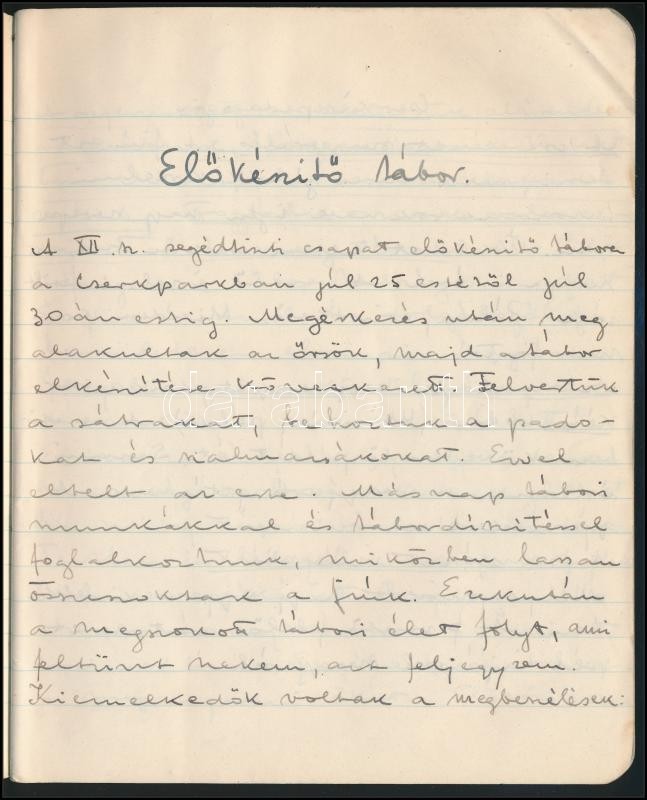 Előkészítő tábor.
A XII. sz. segédtiszti csapat előkészítő tábora
a Cserkparkban júl 25 estétől júl
30án estig. Megérkezés után meg
alakultak az őrsök, majd a tábor
elkészítése következett. Felvertük
a sátrakat, behoztuk a pado-
kat és szalmazsákokat. Ezzel
eltelt az este. Másnap tábori
munkákkal és tábordíszítéssel
foglalkoztunk, miközben lassan
összeszoktak a fiúk. Ezekután
a megszokott tábori élet folyt, ami
feltünt nekem, azt feljegyzem.
Kiemelkedők voltak a megbeszélések:
darabanth